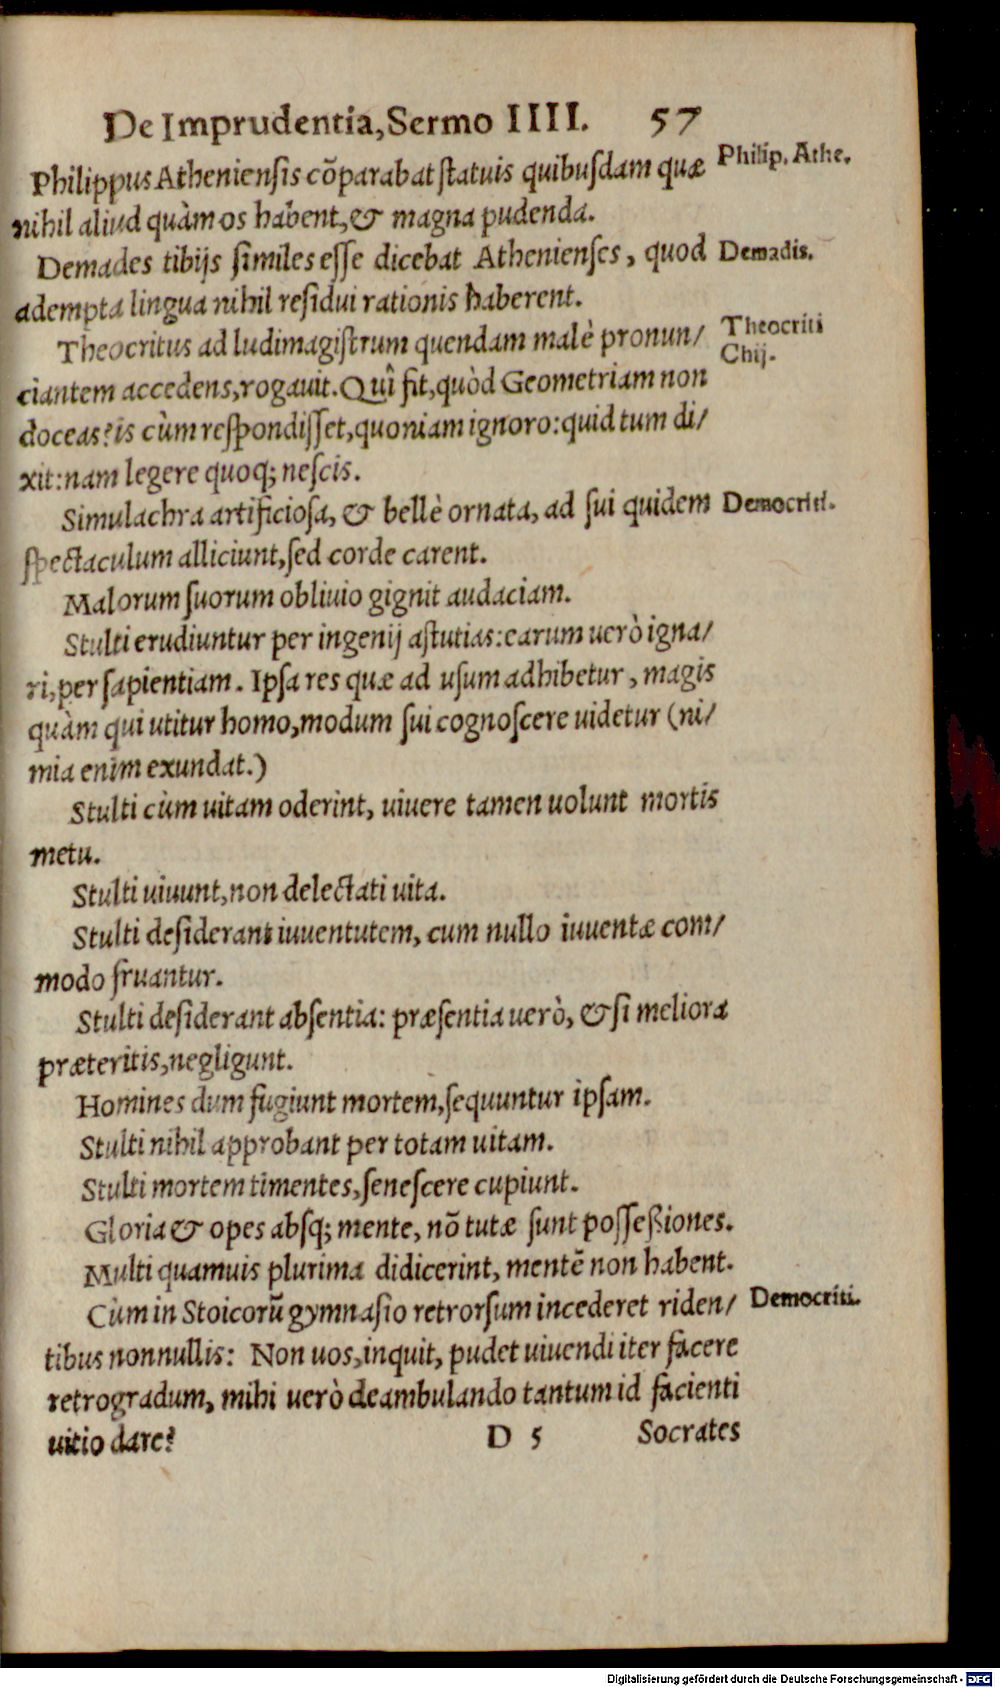 De Imprudentia, Sermo IIII. 57
Philippus Atheniensis cõparabat ſtatuis quibuſdam quæ
Philip. Athe.
nihil aliud quàm os habent, & magna pudenda.
Demades tibijs ſimiles eſſe dicebat Athenienſes, quod
Demadis.
adempta lingua nihil reſidui rationis haberent.
Theocritus ad ludimagiſtrum quendam malè pronun/
Theocriti
Chij.
ciantem accedens, rogauit. Quî fit, quòd Geometriam non
doceas? is cùm reſpondiſſet, quoniam ignoro: quid tum di/
xit: nam legere quoq; neſcis.
Simulachra artificioſa, & bellè ornata, ad ſui quidem
Democriti.
ſpectaculum alliciunt, ſed corde carent.
Malorum ſuorum obliuio gignit audaciam.
Stulti erudiuntur per ingenij aſtutias: earum uerò igna/
ri, per ſapientiam. Ipſa res quæ ad uſum adhibetur, magis
quàm qui utitur homo, modum ſui cognoſcere uidetur (ni/
mia enim exundat.)
Stulti cùm uitam oderint, uiuere tamen uolunt mortis
metu.
Stulti uiuunt, non delectati uita.
Stulti deſiderant iuuentutem, cum nullo iuuentæ com/
modo fruantur.
Stulti deſiderant abſentia: præſentia uerò, & ſi meliora
præteritis, negligunt.
Homines dum fugiunt mortem, ſequuntur ipſam.
Stulti nihil approbant per totam uitam.
Stulti mortem timentes, ſeneſcere cupiunt.
Gloria & opes abſq; mente, nõ tutæ ſunt poſſeßiones.
Multi quamuis plurima didicerint, mentẽ non habent.
Cùm in Stoicorũ gymnaſio retrorſum incederet riden/
Democriti.
tibus nonnullis: Non uos, inquit, pudet uiuendi iter facere
retrogradum, mihi uerò deambulando tantum id facienti
uitio dare?
D 5 Socrates
Digitalisierung gefördert durch die Deutsche Forschungsgemeinschaft - DFG